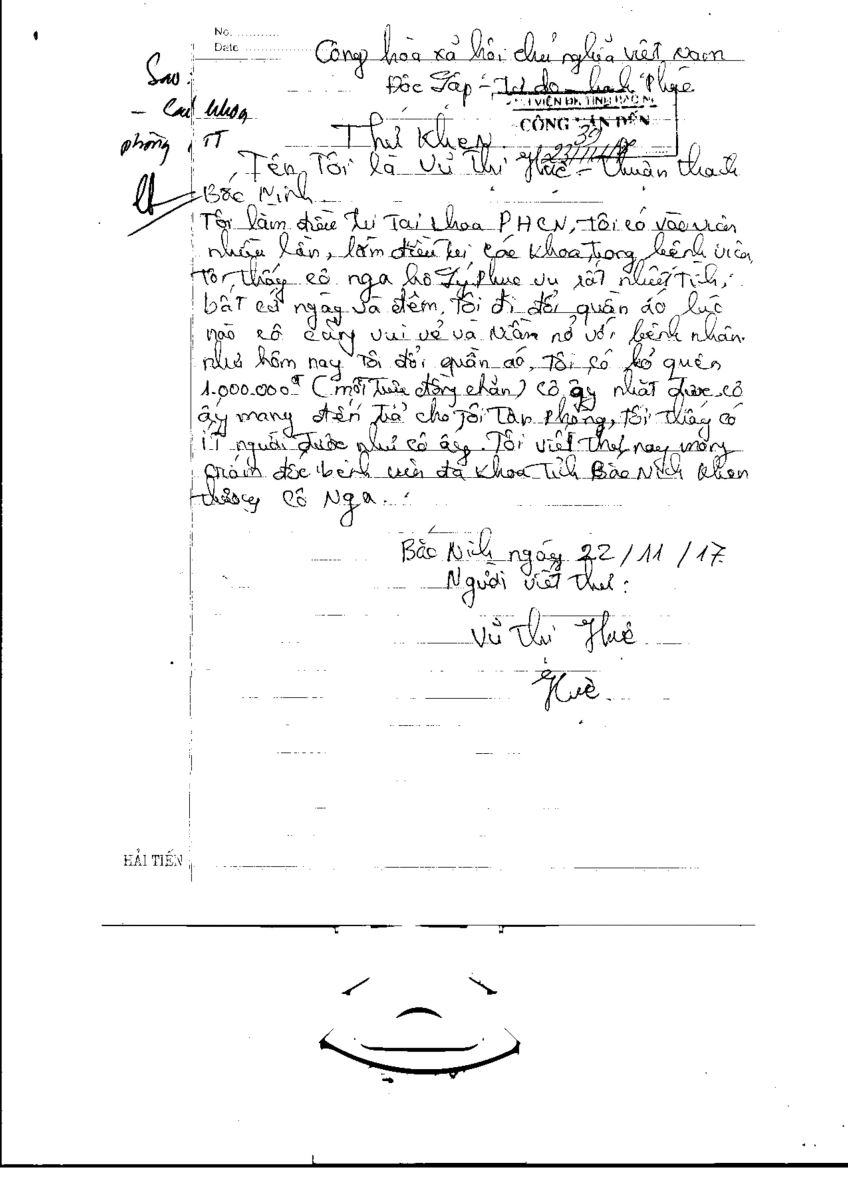 No. ............
Date ..................
Cộng hòa xả hội chủ nghĩa việt nam
Độc Lập - Tự do - hạnh Phúc
Sao:
- Các khoa
phòng, TT
VIỆN ĐK TỈNH BẮC N
CÔNG VĂN ĐẾN
39
23/11/17
Thư Khen
Tên Tôi là Vũ Thị Huê - thuận thành
Bắc Ninh
Tôi làm điều trị Tại khoa PHCN, Tôi có vào viện
nhiều lần, làm điều trị các khoa trong bệnh viện,
Tôi thấy cô nga hộ Lý Phục vụ rất nhiệt Tình,
bất cứ ngày và đêm, Tôi đi đổi quần áo lúc
nào cô cũng vui vẻ và niềm nở với bệnh nhân.
như hôm nay Tôi đổi quần áo, Tôi có bỏ quên
1.000.000đ (một triệu đồng chẵn) cô ấy nhặt được cô
ấy mang đến trả cho Tôi Tận phòng, Tôi thấy có
iT người được như cô ấy. Tôi viết Thư nay mong
giám đốc bệnh viện đa khoa Tỉnh Bắc Ninh khen
thưởng Cô Nga.
Bắc Ninh ngày 22/11/17
Người viết thư:
Vũ Thị Huê
Huê
HẢI TIẾN